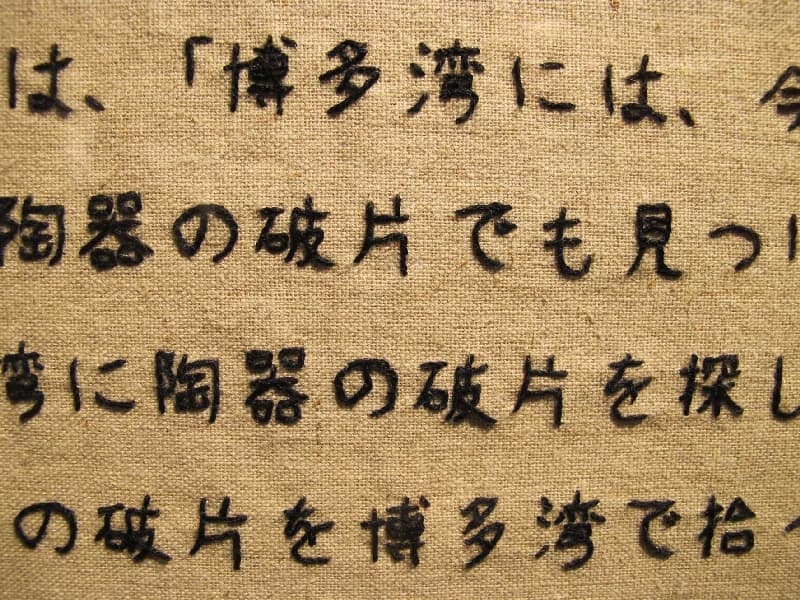 は、「博多湾には、今
陶器の破片でも見つ
湾に陶器の破片を探し
の破片を博多湾で拾